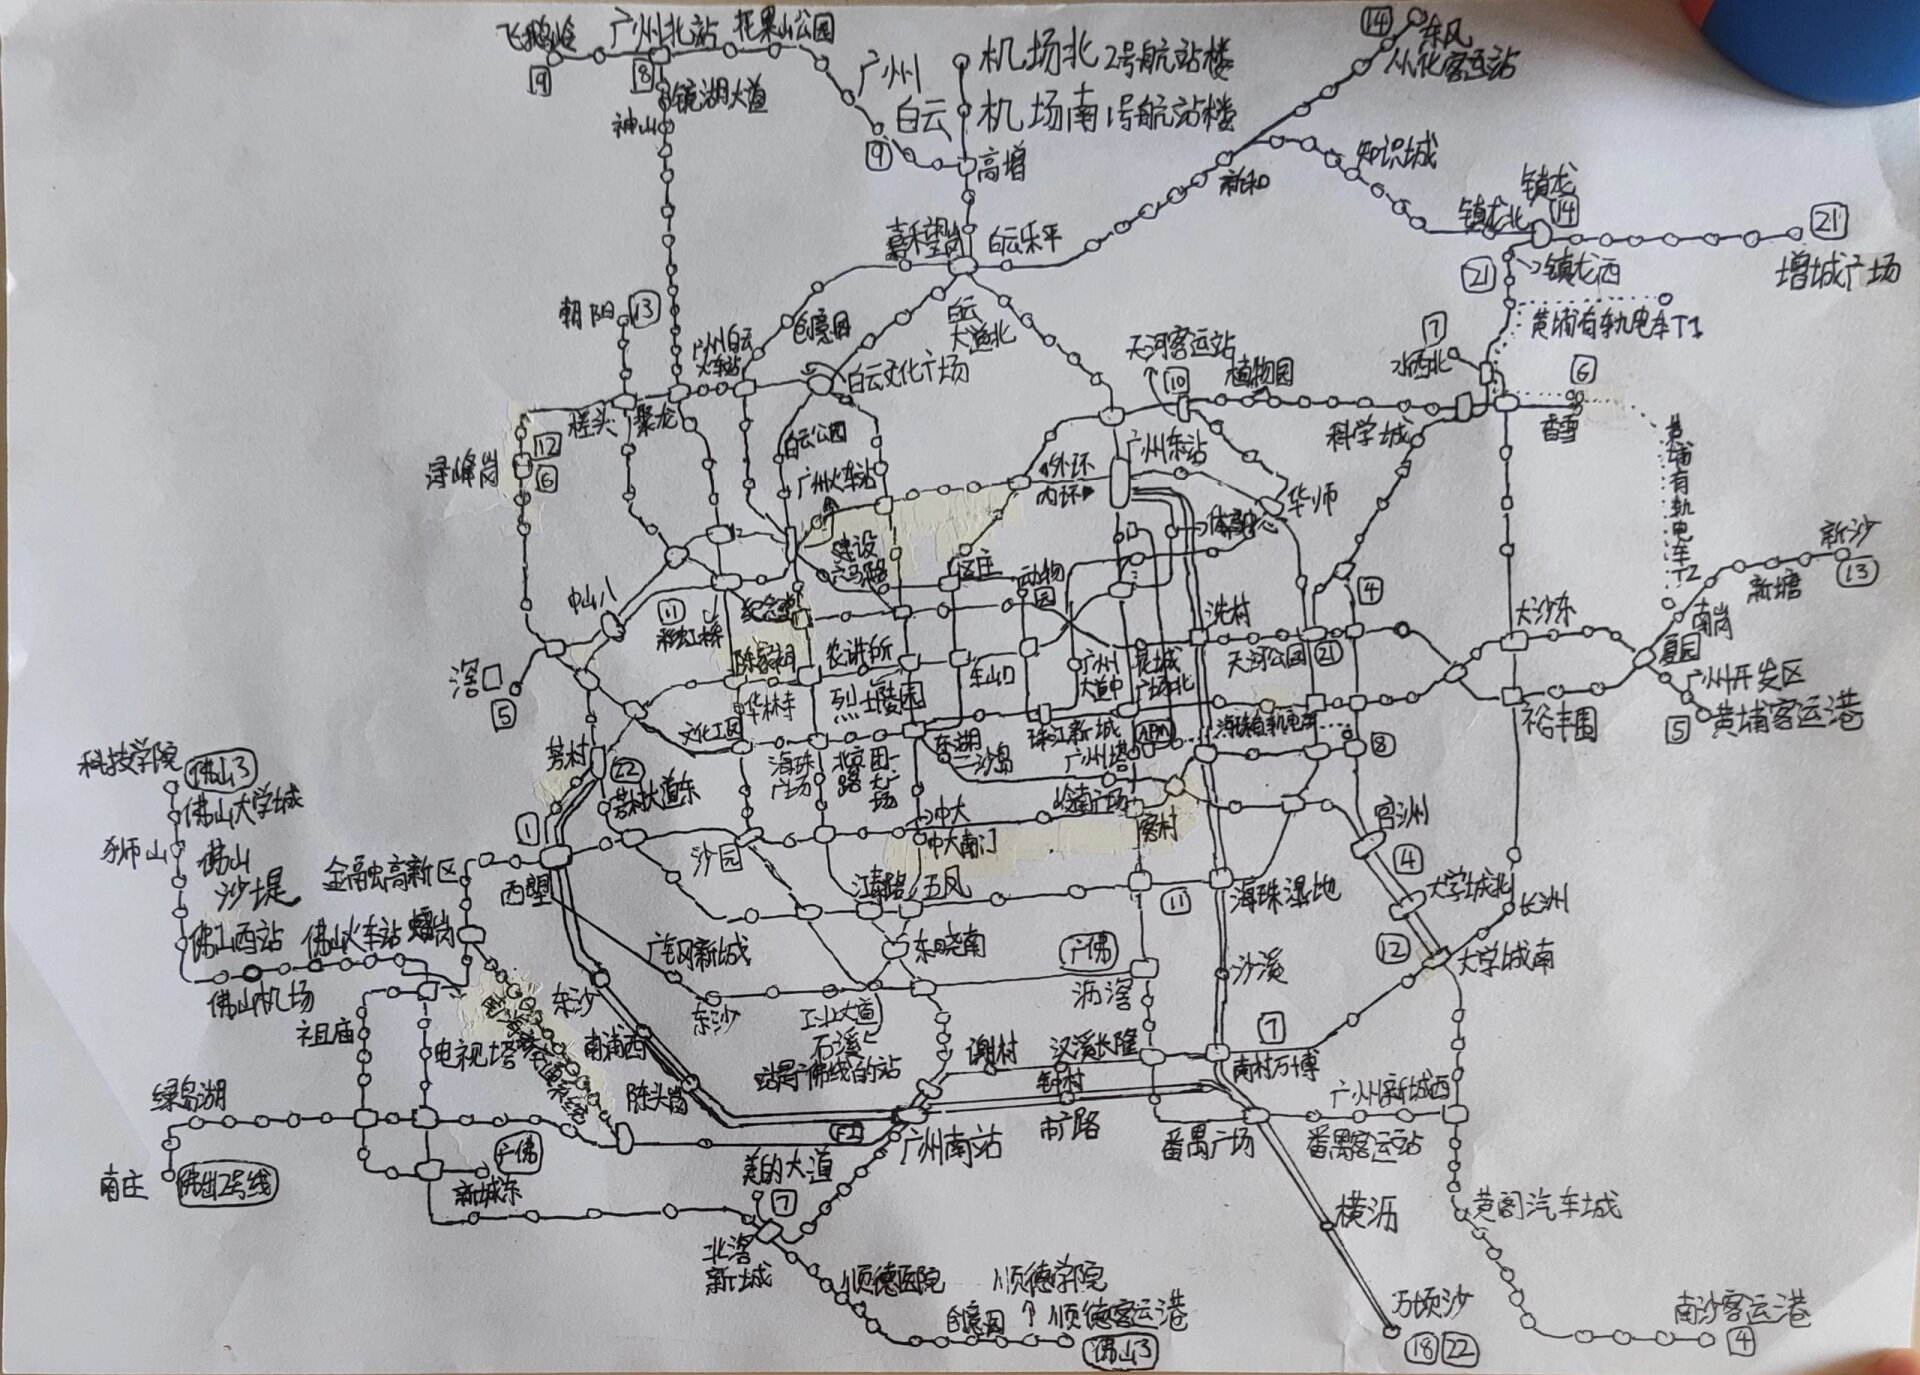 飞鹅岭
广州北站
花果山公园
9
8
镜湖大道
神山
广州
白云
机场北2号航站楼
机场南1号航站楼
9
高增
14
东风
从化客运站
新和
知识城
镇龙
镇龙北
14
21
增城广场
21
镇龙西
嘉禾望岗
白云东平
朝阳
13
广州白云
火车站
创意园
白云
大道北
白云文化广场
天河客运站
10
植物园
7
水西北
黄埔有轨电车T1
6
香雪
科学城
槎头
聚龙
12
浔峰岗
6
白云公园
广州火车站
外环
内环
广州东站
体育中心
华师
黄埔有轨电车T2
新沙
13
新塘
南岗
夏园
广州开发区
5
黄埔客运港
大沙东
裕丰围
中山八
11
彩虹桥
纪念堂
建设
六马路
区庄
动物
园
冼村
4
滘口
5
陈家祠
农讲所
东山口
广州
大道中
天河公园
21
华林寺
烈士陵园
文化公园
海珠
广场
北京
路
团一大
广场
东湖
二沙岛
珠江新城
广州塔
APM
海珠有轨电车
8
芳村
22
芳村大道东
科技学院
佛山3
佛山大学城
狮山
佛山
沙堤
1
金融高新区
西塱
沙园
中大
中大南门
岭南广场
客村
官洲
4
大学城北
长洲
江南路
五凤
11
海珠湿地
12
大学城南
佛山西站
佛山火车站
蟠岗
佛山机场
广钢新城
东晓南
广佛
沥滘
沙溪
东沙
东沙
工业大道
石溪
祖庙
电视塔
南浦西
谢村
汉溪长隆
7
南村万博
绿岛湖
陈头岗
钟村
市广路
广州新城西
F2
广州南站
番禺广场
番禺客运站
南庄
佛山2号线
广佛
新城东
美的大道
7
横沥
黄阁汽车城
北滘
新城
顺德医院
顺德学院
创意园
顺德客运港
佛山3
万顷沙
18
22
南沙客运港
4